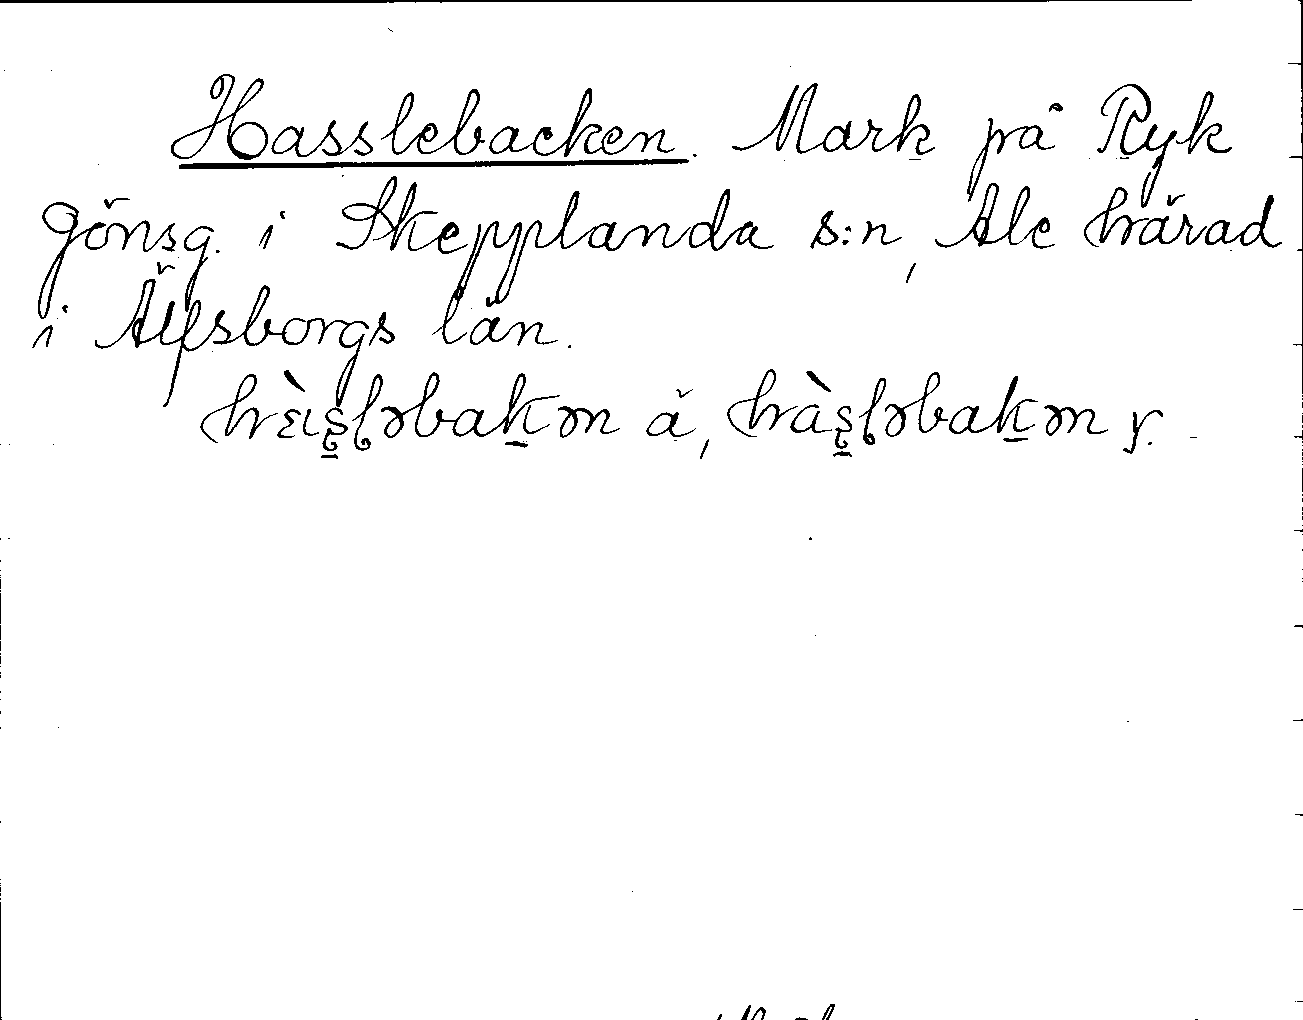 Hasslebacken. Mark på Ryk
Gönsg. i Skepplanda s:n, Ale härad
i Älfsborgs län.
hɛ̀ıs̱ləbaḵən ä, hàs̱ləbaḵən y.